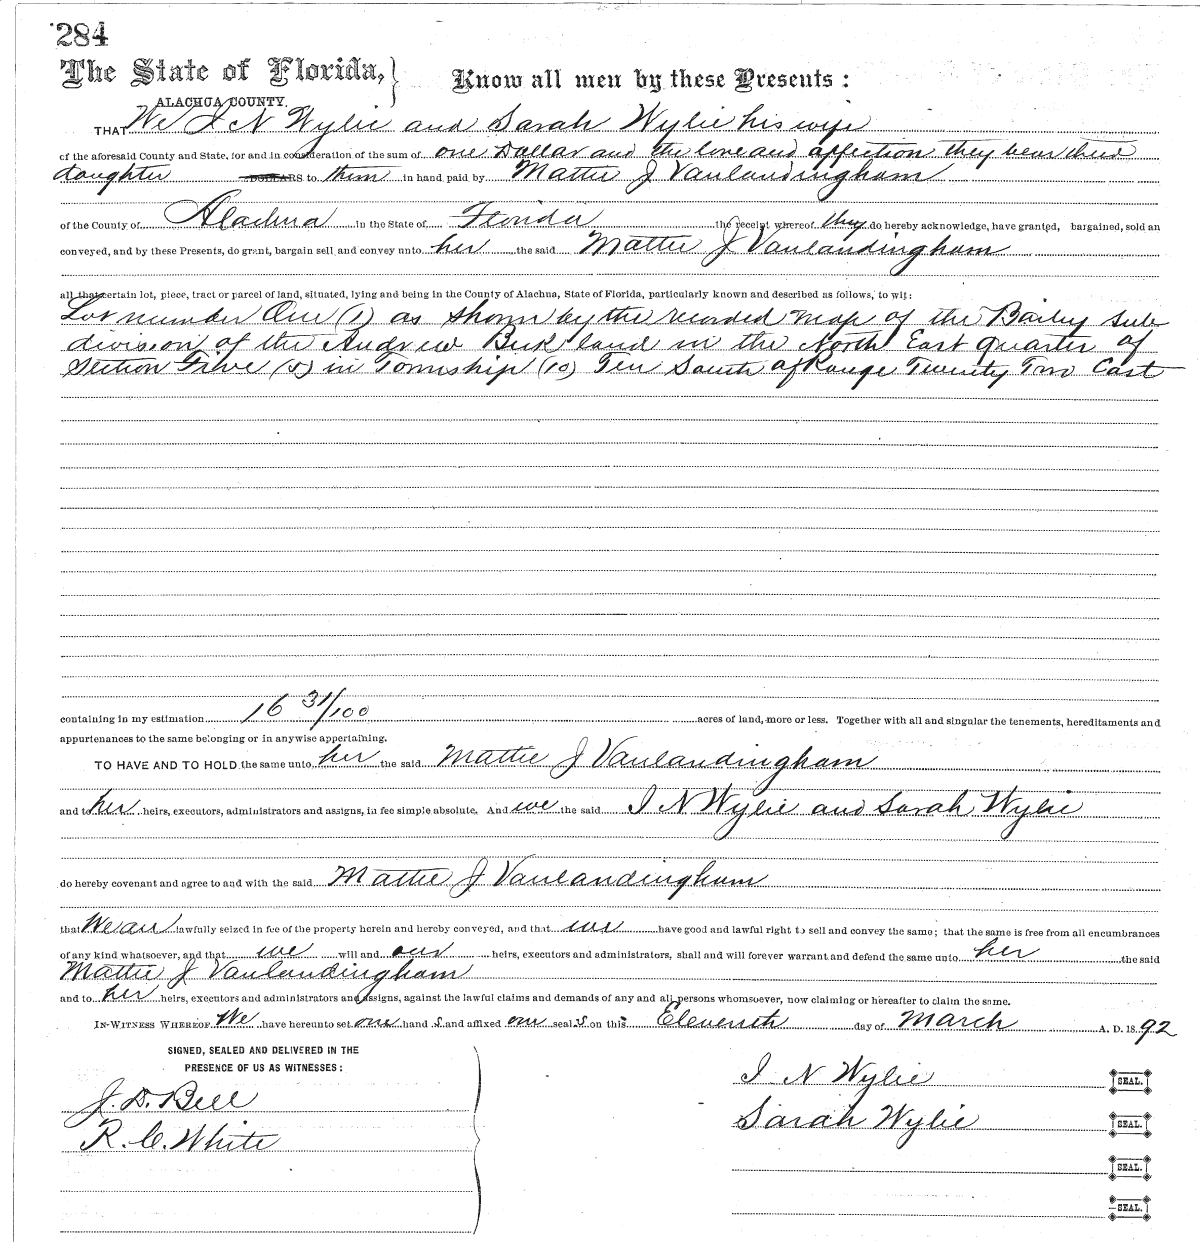 284
The State of Florida,
Know all men by these Presents:
ALACHUA COUNTY.
THAT We I N Wylie and Sarah Wylie his wife
of the aforesaid County and State, for and in consideration of the sum of one Dollar and the love and affection they bear their
daughter DOLLARS to them in hand paid by Mattie J Vanlandingham
of the County of Alachua in the State of Florida the receipt whereof they do hereby acknowledge, have granted, bargained, sold an
conveyed, and by these Presents, do grant, bargain sell and convey unto her the said Mattie J Vanlandingham
all that certain lot, piece, tract or parcel of land, situated, lying and being in the County of Alachua, State of Florida, particularly known and described as follows, to wit:
Lot number One (1) as shown by the recorded map of the Baily sub
division of the Andrew Beck land in the North East quarter of
Section Five (5) in Township (10) Ten South of Range Twenty Two East
containing in my estimation 16 31/100 acres of land, more or less. Together with all and singular the tenements, hereditaments and
appurtenances to the same belonging or in anywise appertaining.
TO HAVE AND TO HOLD the same unto her the said Mattie J Vanlandingham
and to her heirs, executors, administrators and assigns, in fee simple absolute. And we the said I N Wylie and Sarah Wylie
do hereby covenant and agree to and with the said Mattie J Vanlandingham
that We are lawfully seized in fee of the property herein and hereby conveyed, and that we have good and lawful right to sell and convey the same; that the same is free from all encumbrances
of any kind whatsoever, and that we will and our heirs, executors and administrators, shall and will forever warrant and defend the same unto her the said
Mattie J Vanlandingham
and to her heirs, executors and administrators and assigns, against the lawful claims and demands of any and all persons whomsoever, now claiming or hereafter to claim the same.
IN WITNESS WHEREOF We have hereunto set our hand s and affixed our seal s on this Eleventh day of March A. D. 1892
SIGNED, SEALED AND DELIVERED IN THE
PRESENCE OF US AS WITNESSES:
J. D. Bell
R. C. White
I N Wylie SEAL.
Sarah Wylie SEAL.
SEAL.
SEAL.